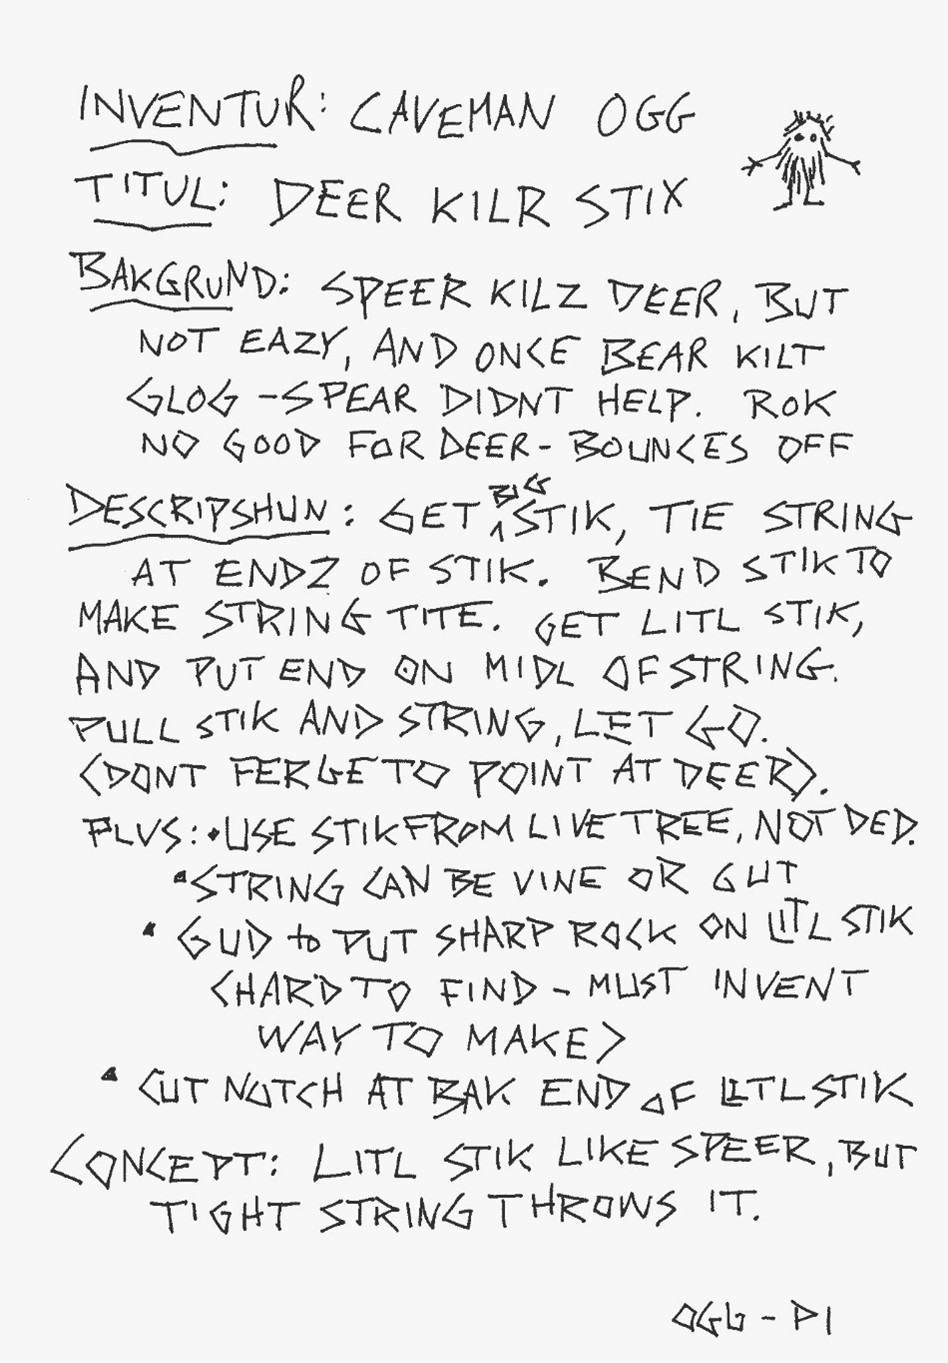 INVENTUR: CAVEMAN OGG
TITUL: DEER KILR STIX
BAKGRUND: SPEER KILZ DEER, BUT
NOT EAZY, AND ONCE BEAR KILT
GLOG - SPEAR DIDNT HELP. ROK
NO GOOD FOR DEER - BOUNCES OFF
DESCRIPSHUN: GET BIG STIK, TIE STRING
AT ENDZ OF STIK. BEND STIK TO
MAKE STRING TITE. GET LITL STIK,
AND PUT END ON MIDL OF STRING.
PULL STIK AND STRING, LET GO.
(DONT FERGET TO POINT AT DEER).
PLUS: • USE STIK FROM LIVE TREE, NOT DED.
• STRING CAN BE VINE OR GUT
• GUD to PUT SHARP ROCK ON LITL STIK
(HARD TO FIND - MUST INVENT
WAY TO MAKE)
• CUT NOTCH AT BAK END OF LITL STIK
CONCEPT: LITL STIK LIKE SPEER, BUT
TIGHT STRING THROWS IT.
OGG - P1